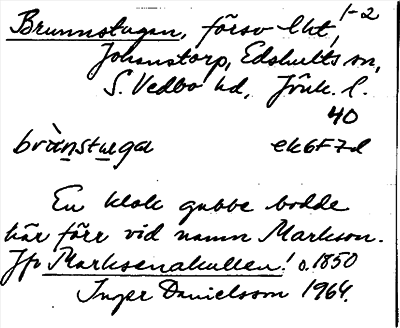 Brunnstugan, försv. lht, 1-2
Johanstorp, Edshults sn,
S. Vedbo hd, Jönk. l.
40
brùnstuga ek6F7d
En klok gubbe bodde
här förr vid namn Markson.
Jfr Marksenakullen! o. 1850
Inger Danielsson 1964.